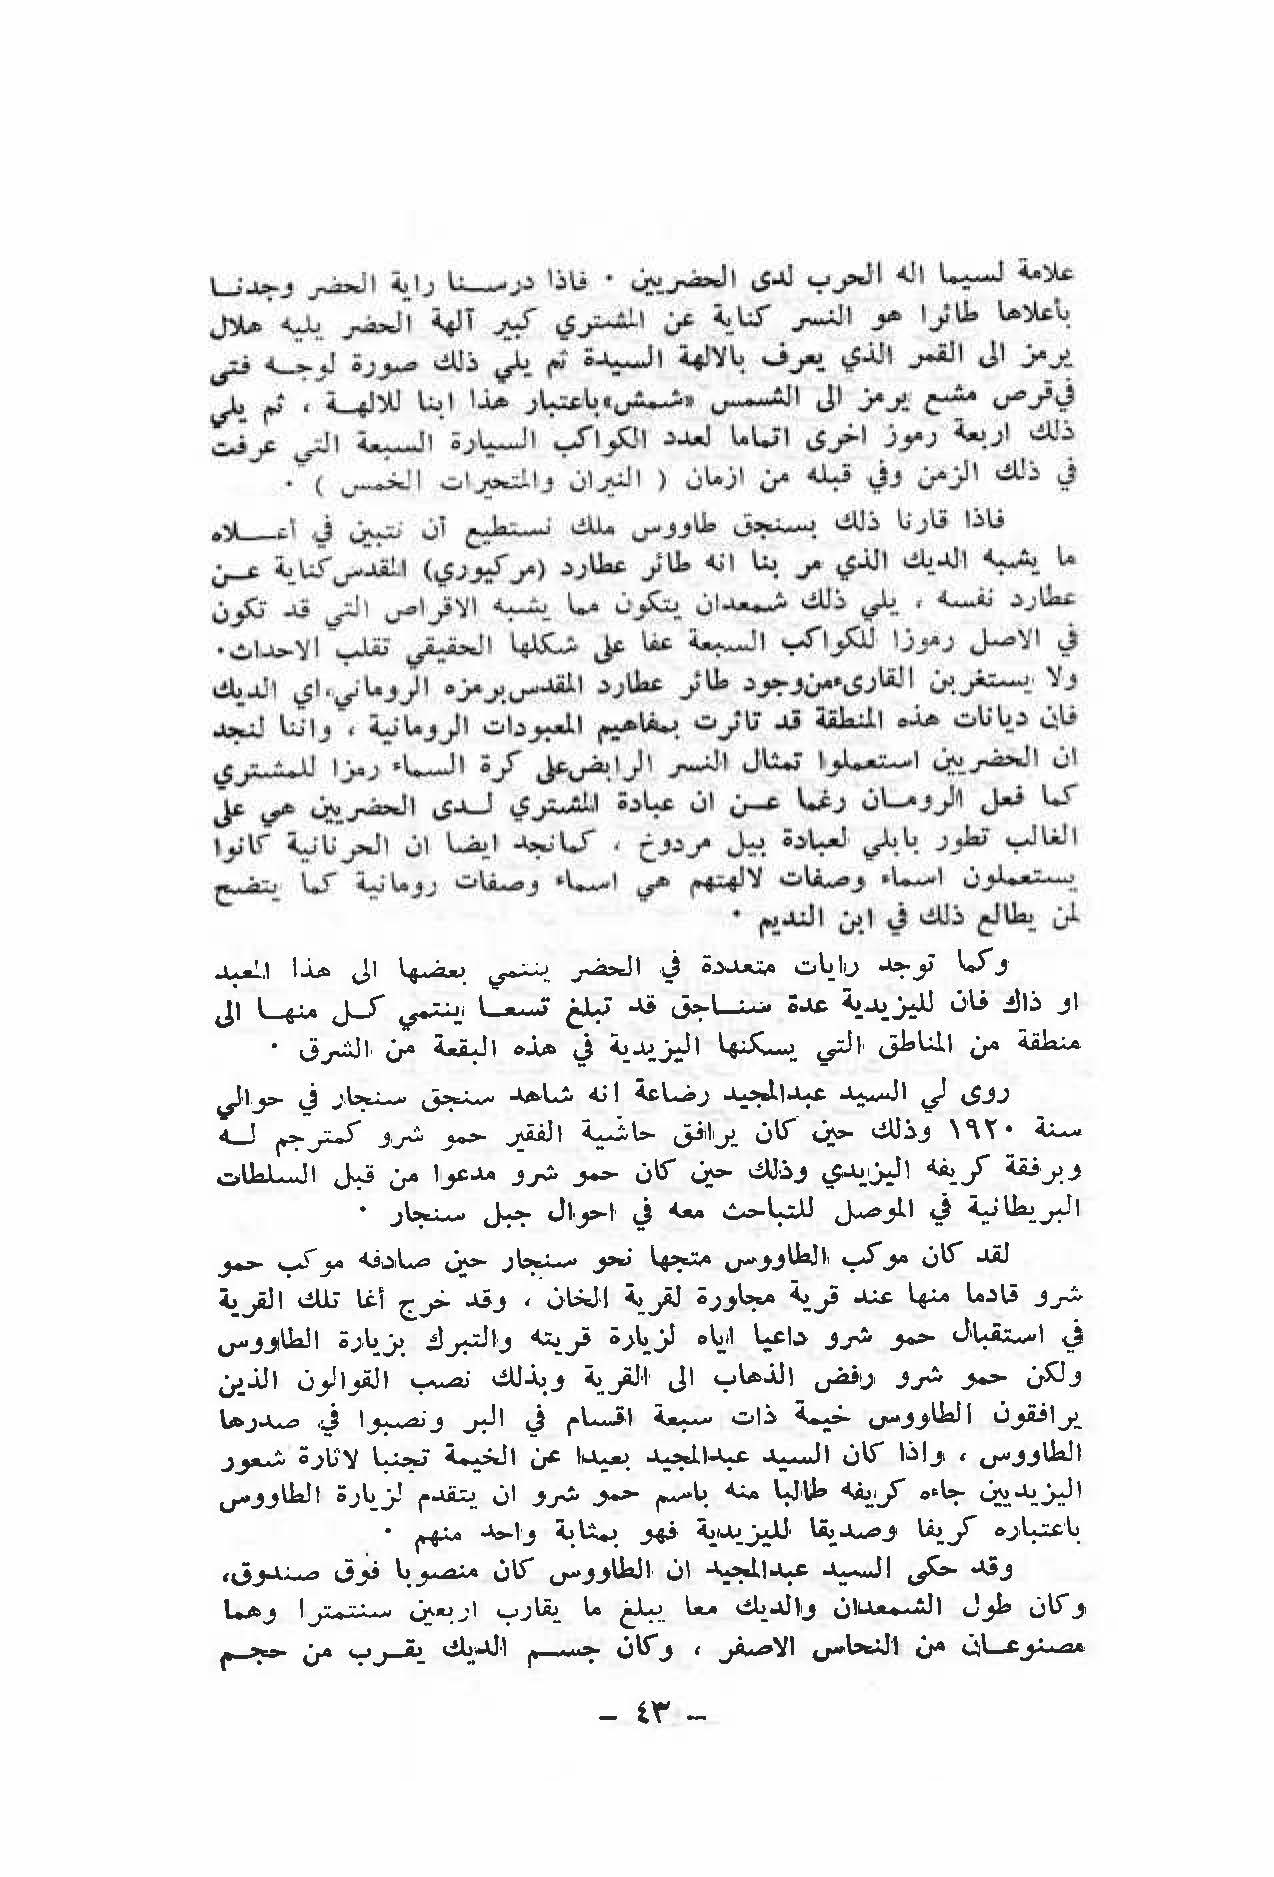 علامة لسيما اله الحرب لدى الحضريين · فاذا درسـنا راية الحضر وجدنـا
بأعلاها طائرا هو النسر كناية عن المشتري كبير آلهة الحضر يليه هلال
يرمز الى القمر الذي يعرف بالالهة السيدة ثم يلي ذلك صورة لوجـه فتى
في قرص مشع يرمز الى الشمس «شمش» باعتبار هذا ابنا للالهـة ، ثم يلي
ذلك اربعة رموز اخرى اتماما لعدد الكواكب السيارة السبعة التي عرفت
في ذلك الزمن وفي قبله من ازمان ( النيران والمتحيرات الخمس ) ·
فاذا قارنا ذلك بسنجق طاووس ملك نستطيع أن نتبين في أعـلاه
ما يشبه الديك الذي مر بنا انه طائر عطارد (مركيوري) المقدس كناية عـن
عطارد نفسه ، يلي ذلك شمعدان يتكون مما يشبه الاقراص التي قد تكون
في الاصل رموزا للكواكب السبعة عفا على شكلها الحقيقي تقلب الاحداث·
ولا يستغربن القارىء من وجود طائر عطارد المقدس برمزه الروماني ، اي الديك
فان ديانات هذه المنطقة قد تاثرت بمفاهيم المعبودات الرومانية ، واننا لنجد
ان الحضريين استعملوا تمثال النسر الرابض على كرة السماء رمزا للمشتري
كما فعل الرومـان رغما عـن ان عبادة المشتري لـدى الحضريين هي على
الغالب تطور بابلي لعبادة بيل مردوخ ، كمانجد ايضا ان الحرنانية كانوا
يستعملون اسماء وصفات لالهتهم هي اسماء وصفات رومانية كما يتضح
لمن يطالع ذلك في ابن النديم ·
وكما توجد رايات متعددة في الحضر ينتمي بعضها الى هذا المعبد
او ذاك فان لليزيدية عدة سنـاجق قد تبلغ تسعـا ينتمي كـل منهـا الى
منطقة من المناطق التي يسكنها اليزيدية في هذه البقعة من الشرق ·
روى لي السيد عبدالمجيد رضاعة انه شاهد سنجق سنجار في حوالي
سنة ١٩٢٠ وذلك حين كان يرافق حاشية الفقير حمو شرو كمترجم لـه
وبرفقة كريفه اليزيدي وذلك حين كان حمو شرو مدعوا من قبل السلطات
البريطانية في الموصل للتباحث معه في احوال جبل سنجار ·
لقد كان موكب الطاووس متجها نحو سنجار حين صادفه موكب حمو
شرو قادما منها عند قرية مجاورة لقرية الخان ، وقد خرج أغا تلك القرية
في استقبال حمو شرو داعيا اياه لزيارة قريته والتبرك بزيارة الطاووس
ولكن حمو شرو رفض الذهاب الى القرية وبذلك نصب القوالون الذين
يرافقون الطاووس خيمة ذات سبعة اقسام في البر ونصبوا في صدرها
الطاووس ، واذا كان السيد عبدالمجيد بعيدا عن الخيمة تجنبا لاثارة شعور
اليزيديين جاءه كريفه طالبا منه باسم حمو شرو ان يتقدم لزيارة الطاووس
باعتباره كريفا وصديقا لليزيدية فهو بمثابة واحد منهم ·
وقد حكى السيد عبدالمجيد ان الطاووس كان منصوبا فوق صندوق،
وكان طول الشمعدان والديك معا يبلغ ما يقارب اربعين سنتمترا وهما
مصنوعـان من النحاس الاصفر ، وكان جسـم الديك يقـرب من حجـم
– ٤٣ –